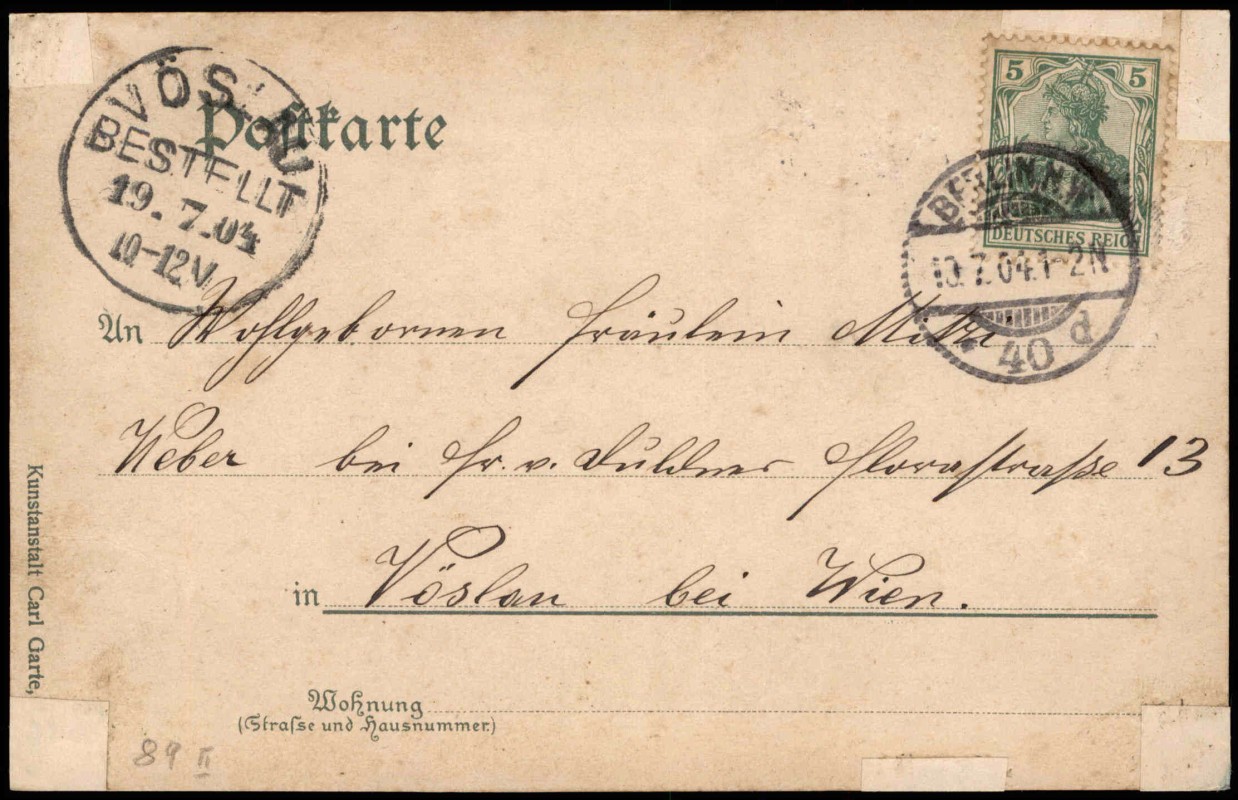 Postkarte
VÖSLAU
BESTELLT
19.7.04
10-12V
5 5
DEUTSCHES REICH
BERLIN N.W.
7.04.1-2N
* 40 d
An Wohlgebornen Fräulein Mitzi
Weber bei Fr. v. Duldner Florastraße 13
in Vöslau bei Wien.
Wohnung
(Straſse und Hausnummer.)
Kunstanstalt Carl Garte,
89 II